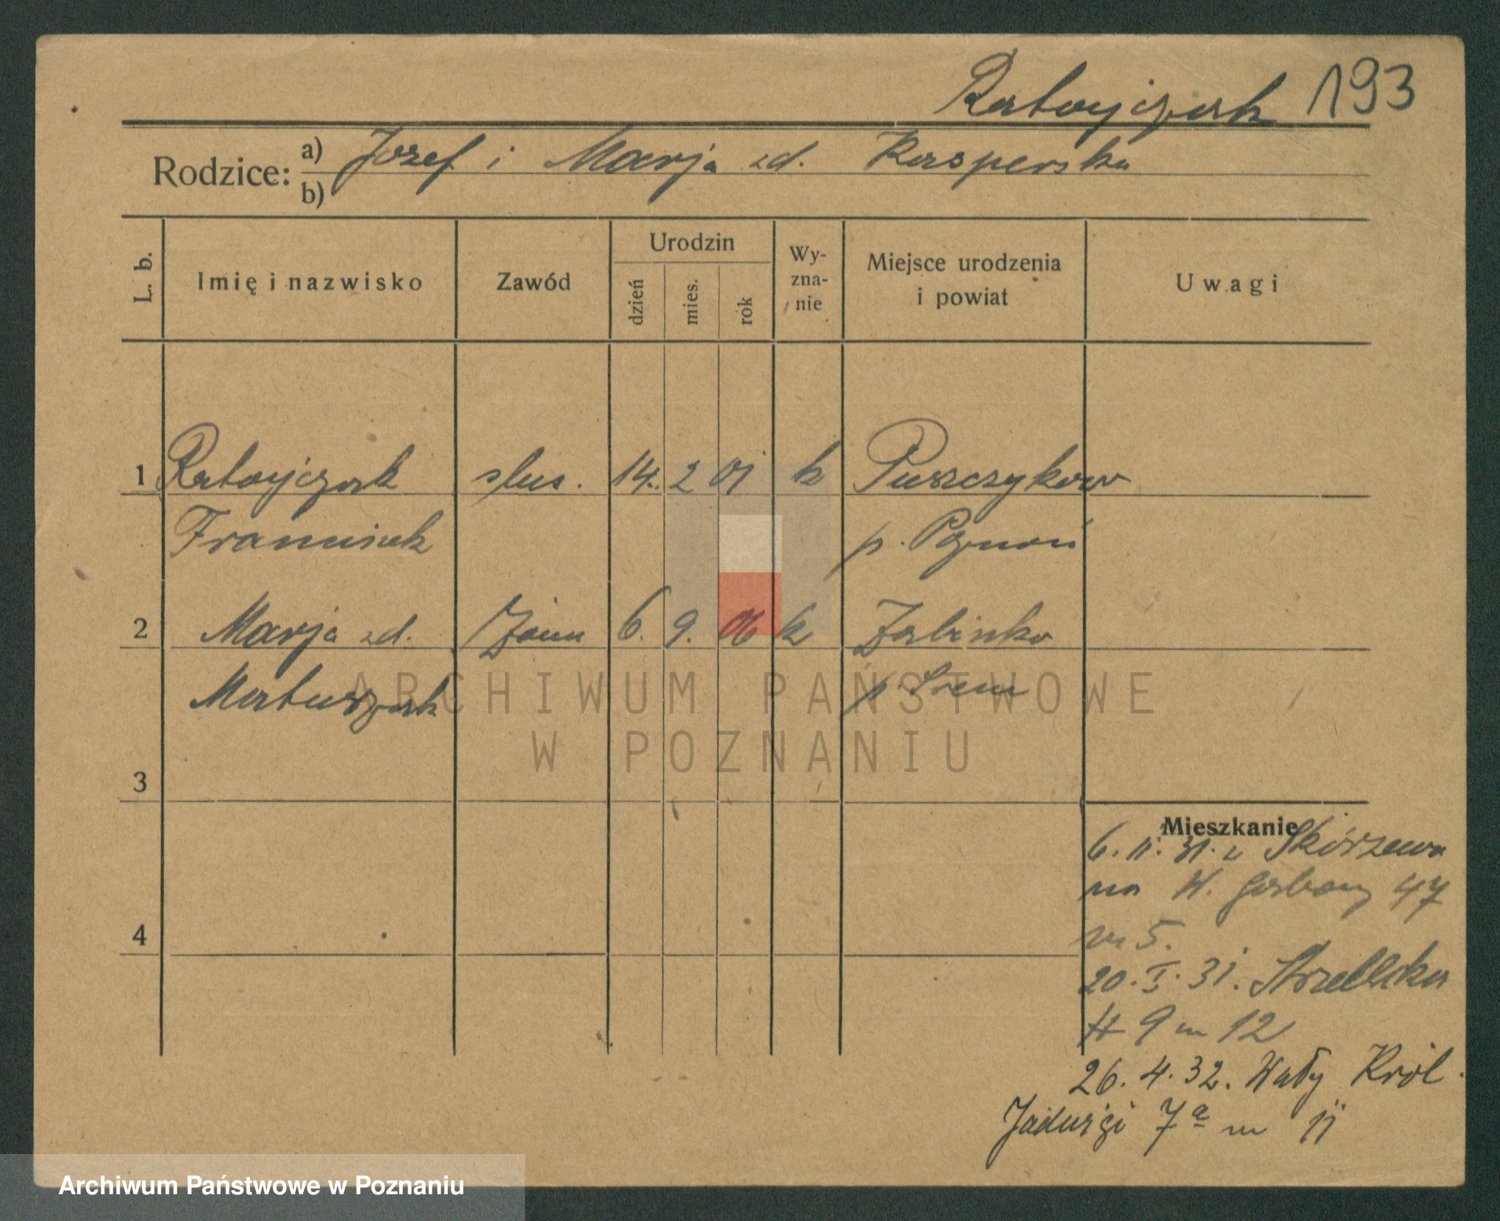 Ratajczak 193
Rodzice: a) Józef i Marja zd. Kasperska
b)
L. b. Imię i nazwisko Zawód Urodzin dzień mies. rok Wy-zna-nie Miejsce urodzenia i powiat Uwagi
1 Ratajczak ślus. 14. 2 01 k Puszczykowo
Franciszek p. Poznań
2 Marja zd. Żona 6. 9. 06 k
Matuszczak p. Śrem
3
4
Mieszkanie
6. II. 31. z Skórzewa
na W. Garbary 47
m 5.
20. I. 31. Strzelecka
9 m 12
26. 4. 32. Wały Król.
Jadwigi 7a m 11
ARCHIWUM PAŃSTWOWE
W POZNANIU
Archiwum Państwowe w Poznaniu